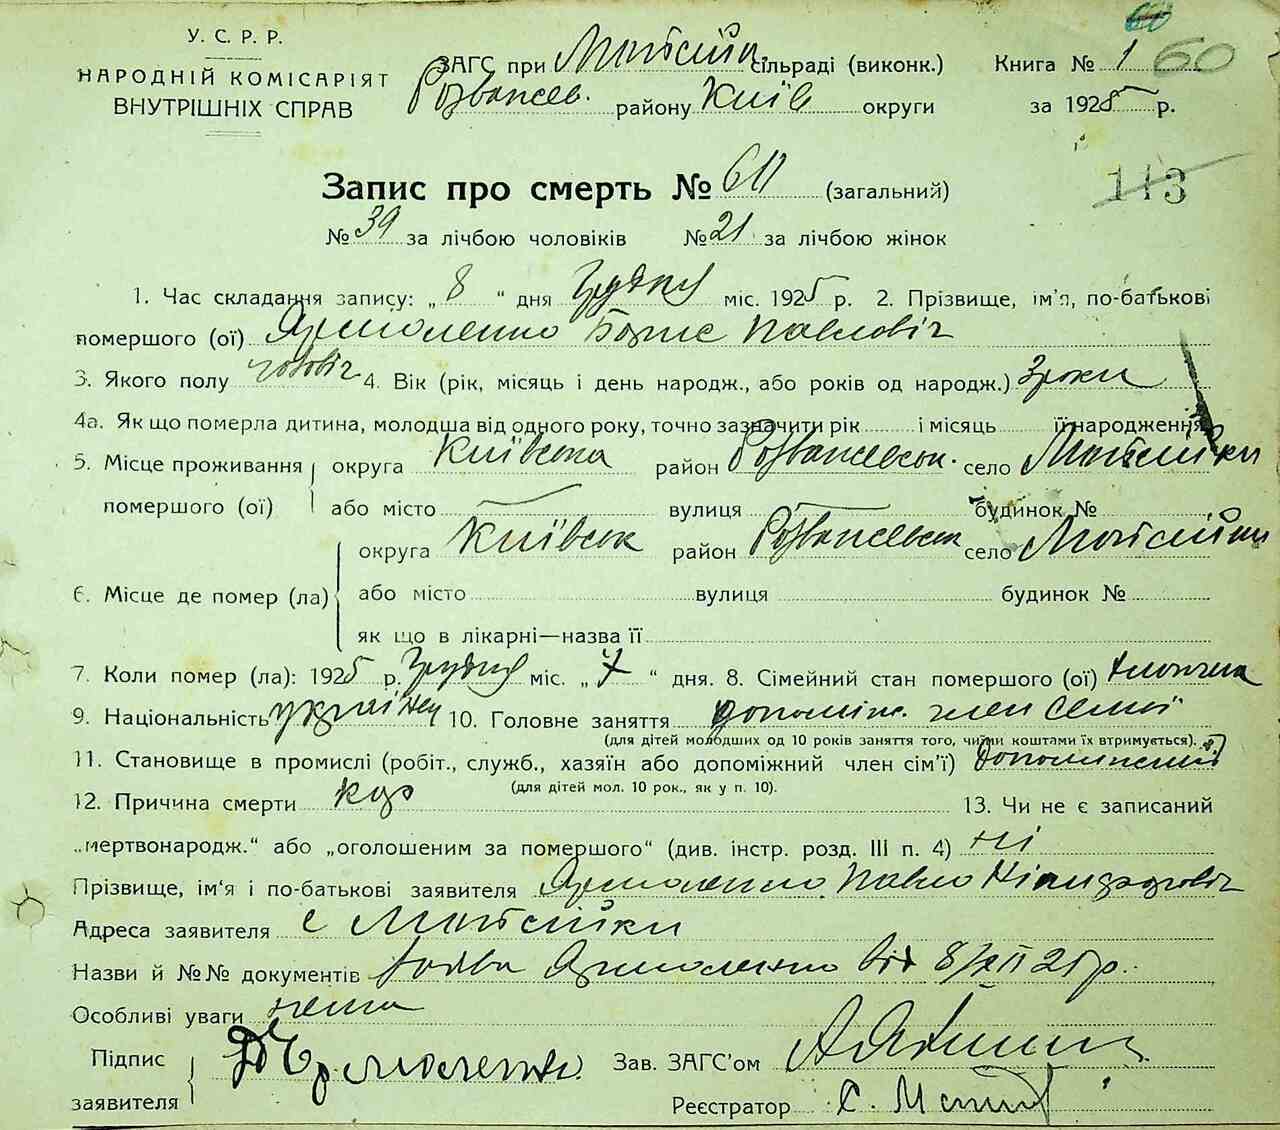 60
У. С. Р. Р.
НАРОДНІЙ КОМІСАРІЯТ
ВНУТРІШНІХ СПРАВ
ЗАГС при сільраді (виконк.)
Розважев. району Київ округи
Книга № 1 60
за 1925 р.
113
Запис про смерть № (загальний)
№ 39 за лічбою чоловіків № 21 за лічбою жінок
1. Час складання запису: „ 8 “ дня Грудня міс. 1925 р. 2. Прізвище, ім'я, по-батькові
помершого (ої) Ярмоленко Борис Павлович
3. Якого полу чоловіч 4. Вік (рік, місяць і день народж., або років од народж.) 3 роки
4а. Як що померла дитина, молодша від одного року, точно зазначити рік і місяць її народження
5. Місце проживання помершого (ої) округа Київська район Розважевськ. село
або місто вулиця будинок №
6. Місце де помер (ла) округа Київськ район Розважевськ село
або місто вулиця будинок №
як що в лікарні—назва її
7. Коли помер (ла): 1925 р. Грудня міс. „ 7 “ дня. 8. Сімейний стан помершого (ої)
9. Національність українец 10. Головне заняття допоміж. член семії
(для дітей молодших од 10 років заняття того, чиїми коштами їх втримується).
11. Становище в промислі (робіт., служб., хазяїн або допоміжний член сім'ї)
(для дітей мол. 10 рок., як у п. 10).
12. Причина смерти кор 13. Чи не є записаний
„мертвонародж.“ або „оголошеним за помершого“ (див. інстр. розд. III п. 4) ні
Прізвище, ім'я і по-батькові заявителя Ярмоленко Павло
Адреса заявителя с
Назви й №№ документів заява Ярмоленко від 8/XII 25 р.
Особливі уваги нема
Підпис заявителя Ярмоленко
Зав. ЗАГС'ом
Реєстратор